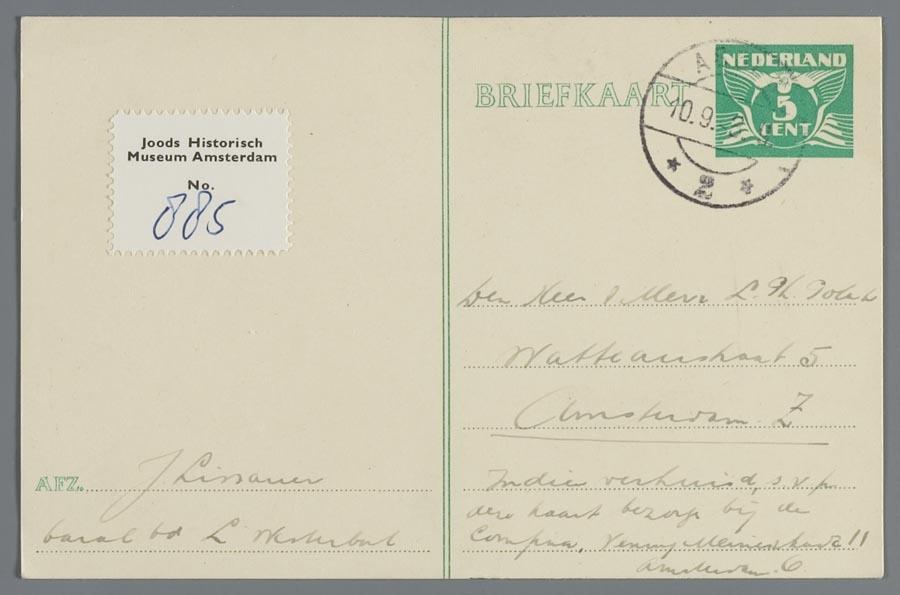 Joods Historisch
Museum Amsterdam
No.
885
AFZ. J Lissauer
barak 60 L Westerbork
BRIEFKAART
NEDERLAND
5
CENT
10.9.
2
Den Heer & Mevr L. Ph. Polak
Watteaustraat 5
Amsterdam. Z
Indien verhuisd, s.v.p.
deze kaart bezorgs bij de
11
Amsterdam. C.